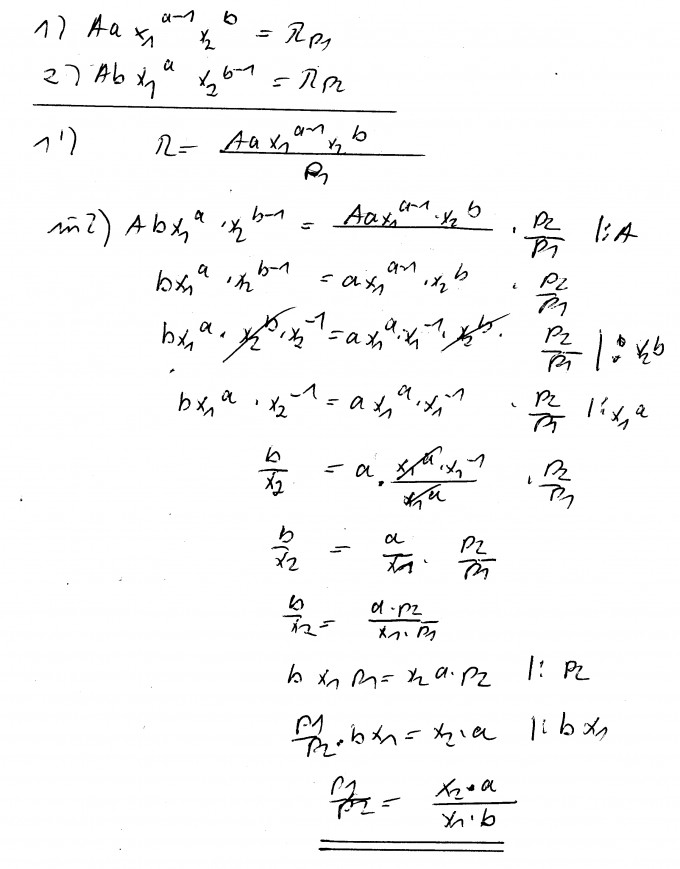 1) Aa x₁^(a-1) x₂^b = λp₁
2) Ab x₁^a x₂^(b-1) = λp₂
1') λ = (Aa x₁^(a-1) x₂^b) / p₁
in 2) Ab x₁^a · x₂^(b-1) = Aa x₁^(a-1) · x₂^b · p₂/p₁ |:A
b x₁^a · x₂^(b-1) = a x₁^(a-1) · x₂^b · p₂/p₁
b x₁^a · x₂^b · x₂^(-1) = a x₁^a · x₁^(-1) · x₂^b · p₂/p₁ |: x₂^b
b x₁^a · x₂^(-1) = a x₁^a · x₁^(-1) · p₂/p₁ |: x₁^a
b/x₂ = a · (x₁^a · x₁^(-1))/x₁^a · p₂/p₁
b/x₂ = a/x₁ · p₂/p₁
b/x₂ = (a · p₂)/(x₁ · p₁)
b x₁ p₁ = x₂ a · p₂ |: p₂
p₁/p₂ · b x₁ = x₂ · a |: b x₁
p₁/p₂ = (x₂ · a)/(x₁ · b)